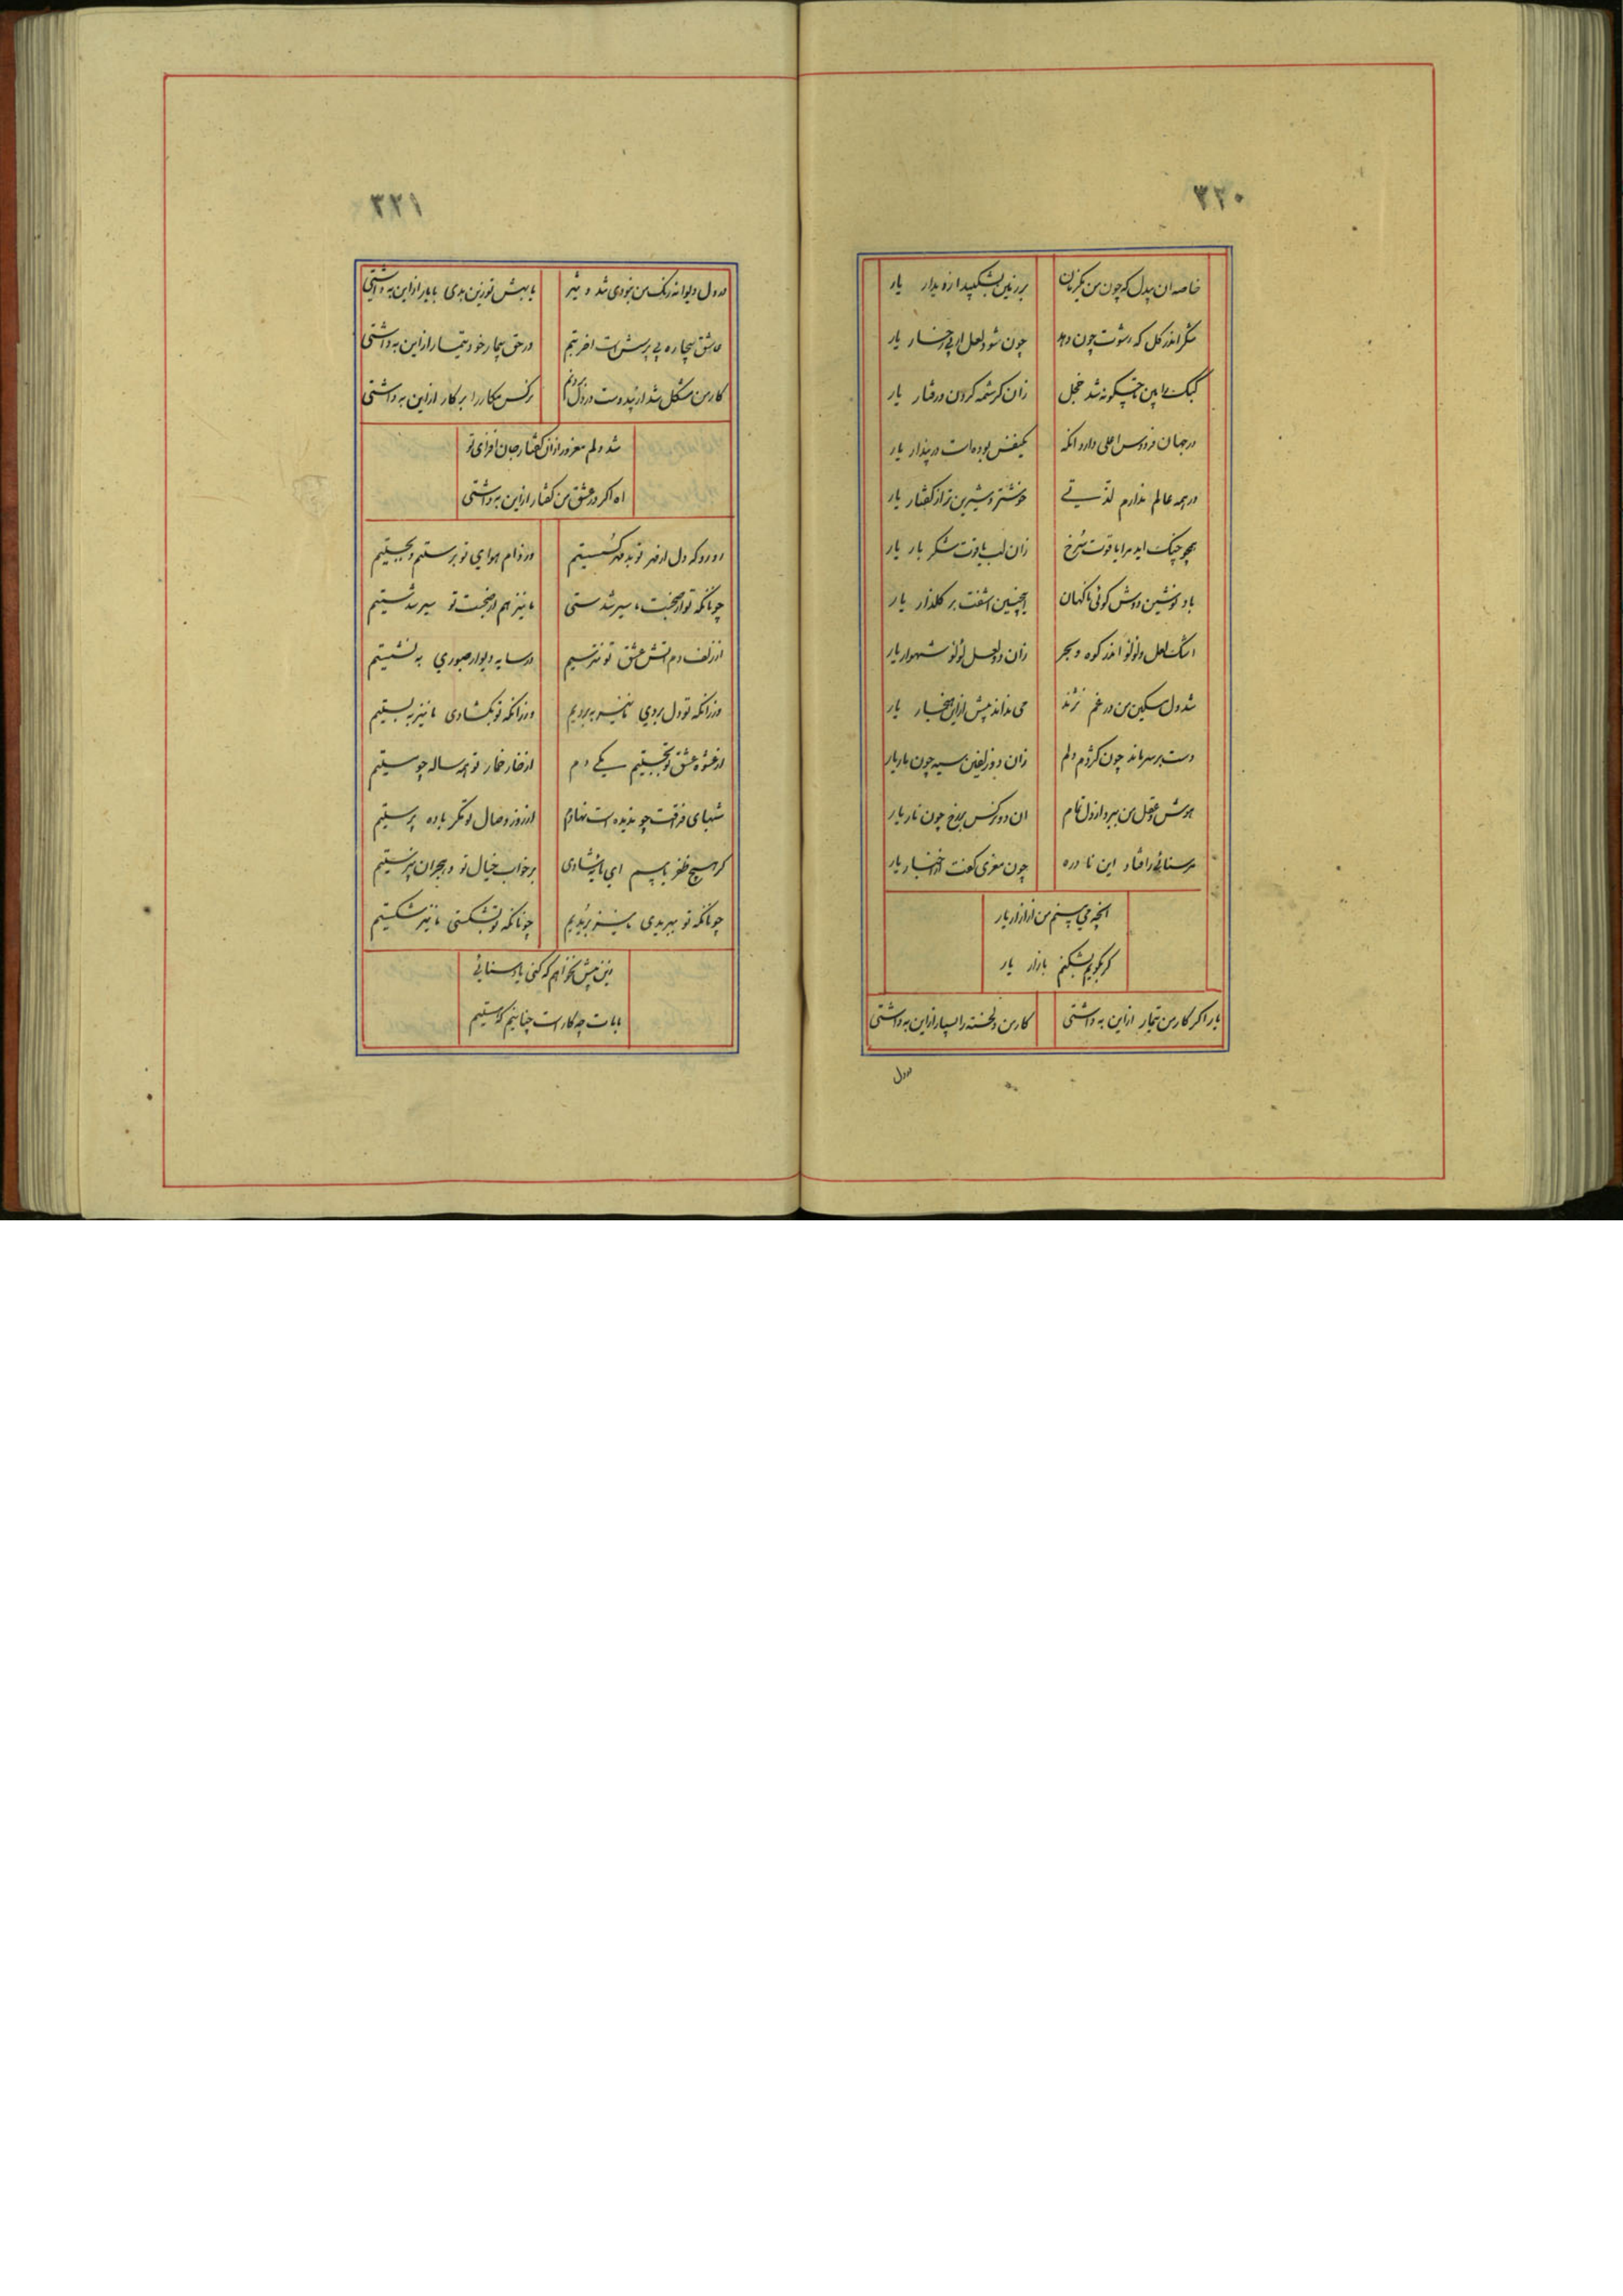 ۳۲۰
خاصه ان بیدل که چون من یکزمان بر زمین نشکیبد از دیدار یار
شکر اندر کل که رشوت چون دهد چون شود لعل از پی رخسار یار
کبک را بین تا چگونه شد خجل زان کرشمه کردن و رفتار یار
در جهان فردوس اعلی دارد انکه یکنفس بوده است در پندار یار
در همه عالم ندارم لذتی خوشتر و شیرین تر از کفتار یار
همچو چنک اید مرا یاقوت سرخ زان لب یاقوت شکر بار یار
باد نوشین دوش کوئی ناکهان اینچنین اشفت بر کلذار یار
اشک لعل و لولو اندر کوه و بحر زان دو لعل لولو شهوار یار
شد دل مسکین من در غم نژند می نداند پیش ازین هنجار یار
دست بر سر ماند چون کژدم دلم زان دو زلفین سیه چون مار یار
هوش و عقل من ببرد از دل تمام ان دو نرکس بر رخ چون نار یار
مر سنائی را فتاد این نادره چون معزی کفت از اخبار یار
انچه می بینم من از ازار یار
کر بکویم بشکنم بازار یار
یار اکر کار من تیمار ازین به داشتی کار من دلخسته را بسیار ازین به داشتی
در دل
۳۲۱
در دل دیوانه رنک من نبودی شد و شر یا بهش تو زین بدی یا یار ازین به داشتی
عاشق بیچاره بی پرسش است اخر بتم در حق بیمار خود تیمار ازین به داشتی
کار من مشکل شد از بد دوست در دل نرکس مکار را بر کار ازین به داشتی
شد دلم مغرور ازان کفتار جان افزای تو
اه اکر در عشق من کفتار ازین به داشتی
رو رو که دل از مهر تو بد مهر کسستیم وز دام هوای تو برستیم و بجستیم
چونانکه تو از صحبت ما سیر شدستی ما نیز هم از صحبت تو سیر شدستیم
از تف دم اتش عشق تو نترسیم در سایه دیوار صبوری به نشستیم
ور زانکه تو دل بردی ما نیز ببردیم ور زانکه تو بکشادی ما نیز ببستیم
از عشوه عشق تو نجستیم یکی دم از خار خمار تو همه ساله چو مستیم
شبهای فراقت چو ندیده است نهادم از روز وصال تو مکر باده پرستیم
کر هیچ ظفر یابیم ای مایه شادی بر خواب خیال تو و هجران بپرستیم
چونانکه تو ببریدی ما نیز بریدیم چونانکه تو بشکستی ما نیز شکستیم
زین پیش نخواهم که کنی یاد سنائی
با مات چه کارست چنانیم که هستیم